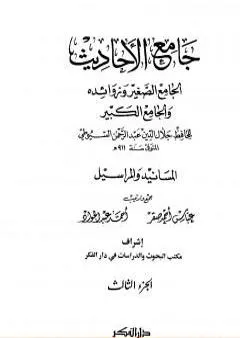 جامع الأحاديث
الجامع الصغير وزوائده
والجامع الكبير
للحافظ جلال الدين عبد الرحمن السيوطي
المتوفى سنة ٩١١ هـ
المسانيد والمراسيل
جمع وترتيب
عباس أحمد صقر أحمد عبد الجواد
إشراف
مكتب البحوث والدراسات في دار الفكر
الجزء الثالث
دار الفكر